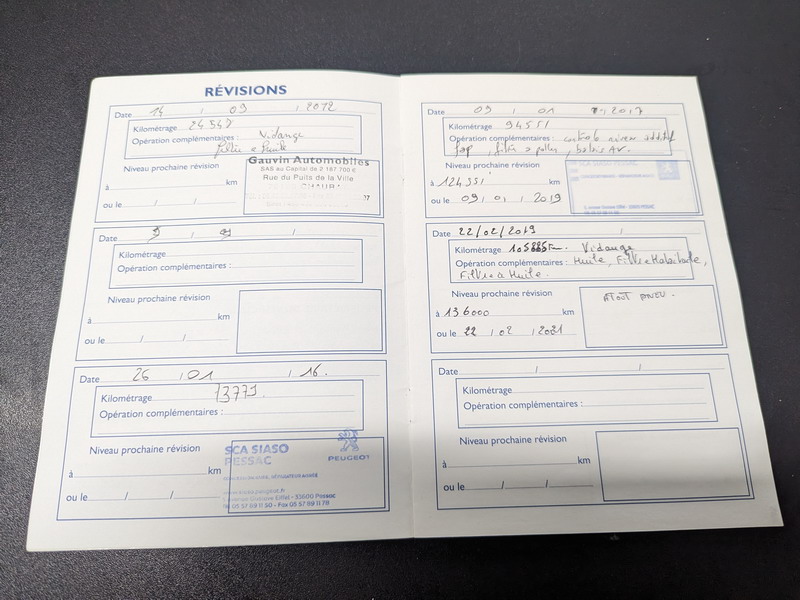 RÉVISIONS
Date 14 / 09 / 2012
Kilométrage 24547
Opération complémentaires : Vidange
filtre à huile
Niveau prochaine révision
à km
ou le / /
Gauvin Automobiles
SAS au Capital de 2 187 700 €
Rue du Puits de la Ville
Date / /
Kilométrage
Opération complémentaires :
Niveau prochaine révision
à km
ou le / /
Date 26 / 01 / 16.
Kilométrage 73779
Opération complémentaires :
Niveau prochaine révision
à km
ou le / /
SCA SIASO
PESSAC
PEUGEOT
Gustave Eiffel - 33600 Pessac
Tél 05 57 89 11 50 - Fax 05 57 89 11 78
Date 09 / 01 / 2017
Kilométrage 94551
Opération complémentaires : contrôle niveau additif
fap, filtre à pollen, balais AV.
Niveau prochaine révision
à 124551 km
ou le 09 / 01 / 2019
SCA SIASO PESSAC
Date 22/02/2019
Kilométrage Vidange
Opération complémentaires : Huile, Filtre Habitacle,
Filtre à Huile.
Niveau prochaine révision
à 136000 km
ou le 22 / 02 / 2021
ATOUT PNEU.
Date / /
Kilométrage
Opération complémentaires :
Niveau prochaine révision
à km
ou le / /